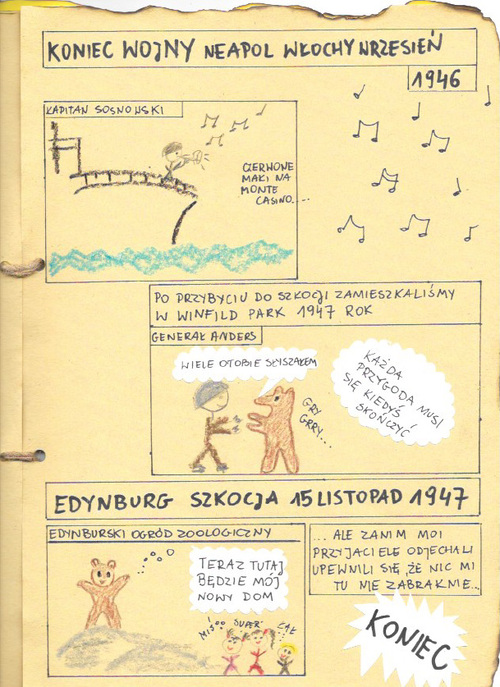 KONIEC WOJNY NEAPOL WŁOCHY WRZESIEŃ
1946
KAPITAN SOSNOWSKI
CZERWONE
MAKI NA
MONTE
CASINO....
PO PRZYBYCIU DO SZKOCJI ZAMIESZKALIŚMY
W WINFILD PARK 1947 ROK
GENERAŁ ANDERS
WIELE O TOBIE SŁYSZAŁEM
KAŻDA
PRZYGODA MUSI
SIĘ KIEDYŚ
SKOŃCZYĆ
GRY
GRRY...
EDYNBURG SZKOCJA 15 LISTOPAD 1947
EDYNBURSKI OGRÓD ZOOLOGICZNY
TERAZ TUTAJ
BĘDZIE MÓJ
NOWY DOM
MIŚ SUPER CAŁ
... ALE ZANIM MOI
PRZYJACIELE ODJECHALI
UPEWNILI SIĘ, ŻE NIC MI
TU NIE ZABRAKNIE...
KONIEC